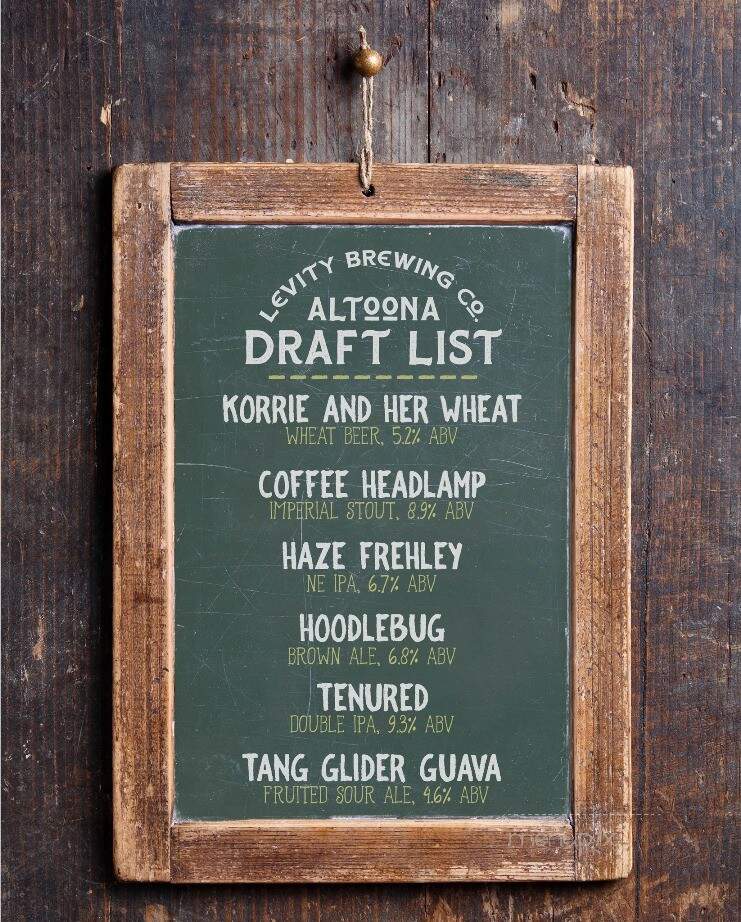 LEVITY BREWING CO.
ALTOONA
DRAFT LIST
KORRIE AND HER WHEAT
WHEAT BEER, 5.2% ABV
COFFEE HEADLAMP
IMPERIAL STOUT, 8.9% ABV
HAZE FREHLEY
NE IPA, 6.7% ABV
HOODLEBUG
BROWN ALE, 6.8% ABV
TENURED
DOUBLE IPA, 9.3% ABV
TANG GLIDER GUAVA
FRUITED SOUR ALE, 4.6% ABV